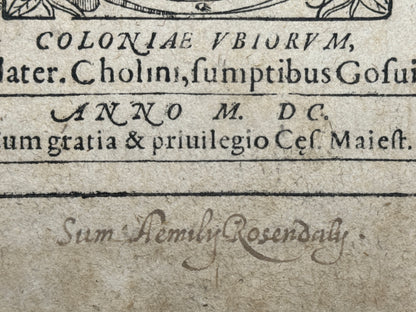 COLONIAE VBIORVM,
Mater. Cholini, ſumptibus Goſui
ANNO M. DC.
Cum gratia & priuilegio Cęſ. Maieſt.
Sum Aemilij Rosendalij.